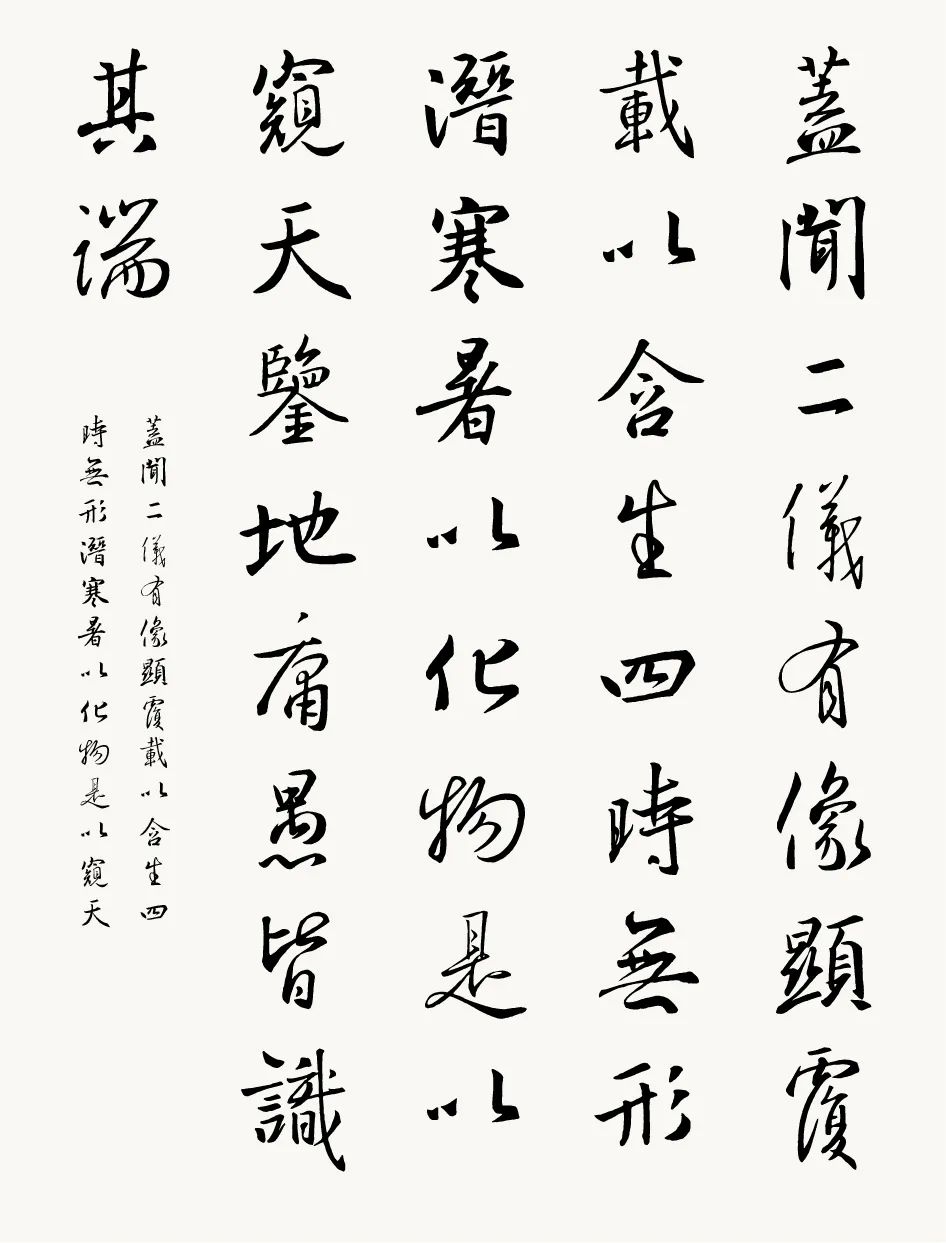 蓋聞二儀有像顯覆
載以含生四時無形
潛寒暑以化物是以
窺天鑒地庸愚皆識
其端
蓋聞二儀有像顯覆載以含生四
時無形潛寒暑以化物是以窺天